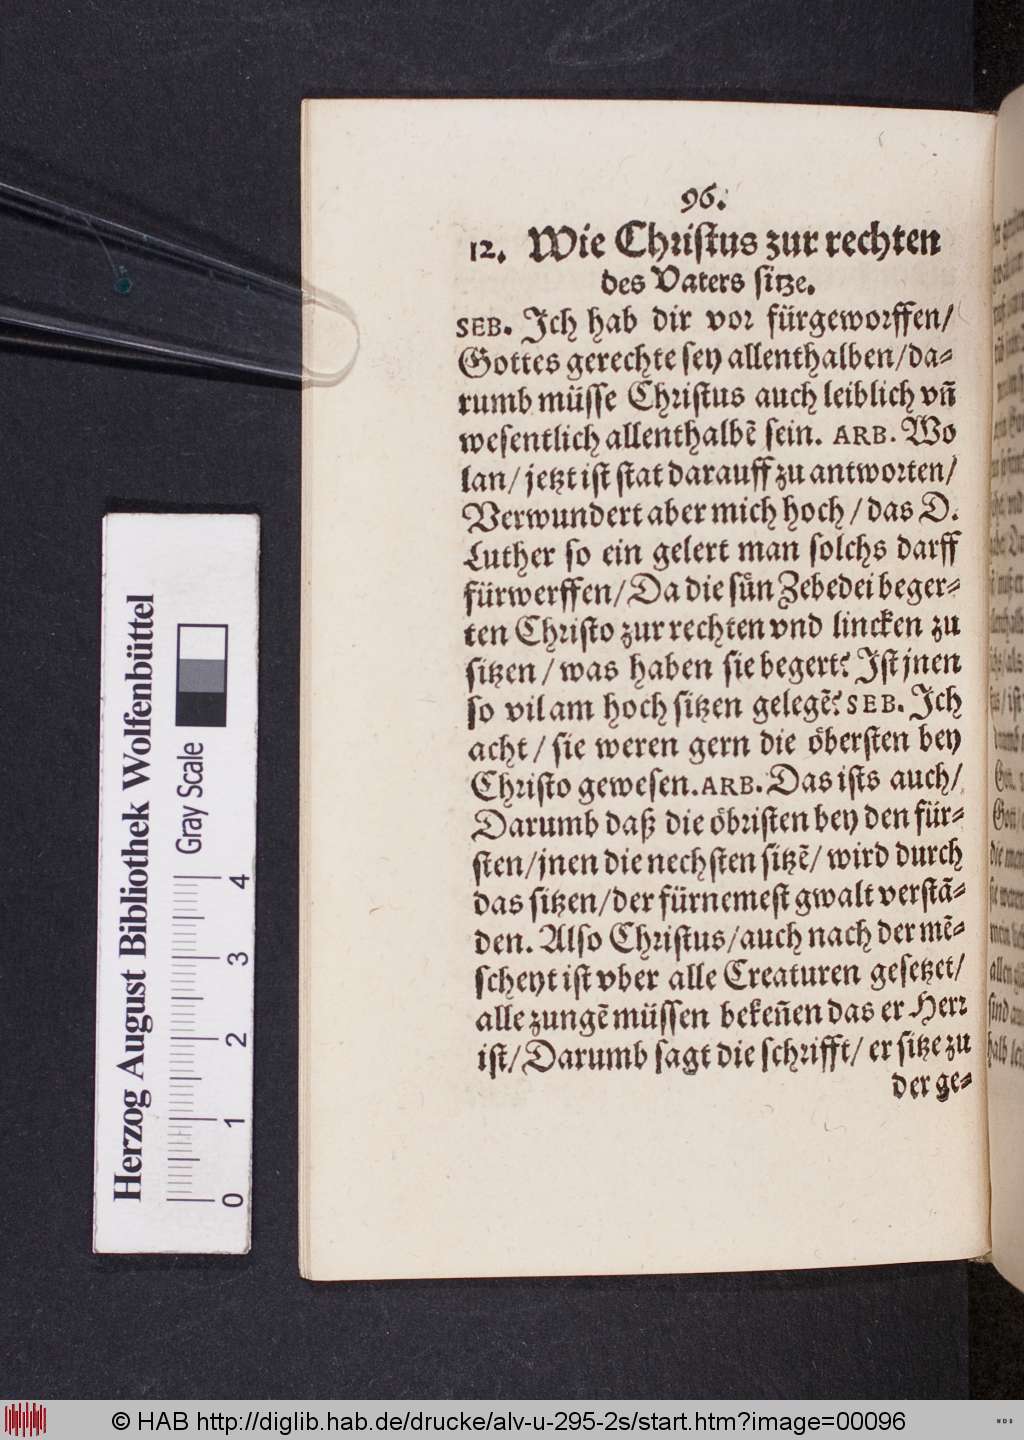 96.
12. Wie Christus zur rechten
des Vaters sitze.
SEB. Ich hab dir vor fürgeworffen/
Gottes gerechte sey allenthalben/da-
rumb müsse Christus auch leiblich vñ
wesentlich allenthalbẽ sein. ARB. Wo
lan/ jetzt ist stat darauff zu antworten/
Verwundert aber mich hoch/ das D.
Luther so ein gelert man solchs darff
fürwerffen/ Da die sün Zebedei beger-
ten Christo zur rechten vnd lincken zu
sitzen/ was haben sie begert? Ist jnen
so vil am hoch sitzen gelegẽ? SEB. Ich
acht/ sie weren gern die öbersten bey
Christo gewesen. ARB. Das ists auch/
Darumb daß die öbristen bey den für-
sten/jnen die nechsten sitzẽ/ wird durch
das sitzen/der fürnemest gwalt verstã-
den. Also Christus/auch nach der mẽ-
scheyt ist vber alle Creaturen gesetzet/
alle zungẽ müssen bekeñen das er Herr
ist/ Darumb sagt die schrifft/ er sitze zu
der ge-
Herzog August Bibliothek Wolfenbüttel
Gray Scale
0 1 2 3 4
© HAB http://diglib.hab.de/drucke/alv-u-295-2s/start.htm?image=00096